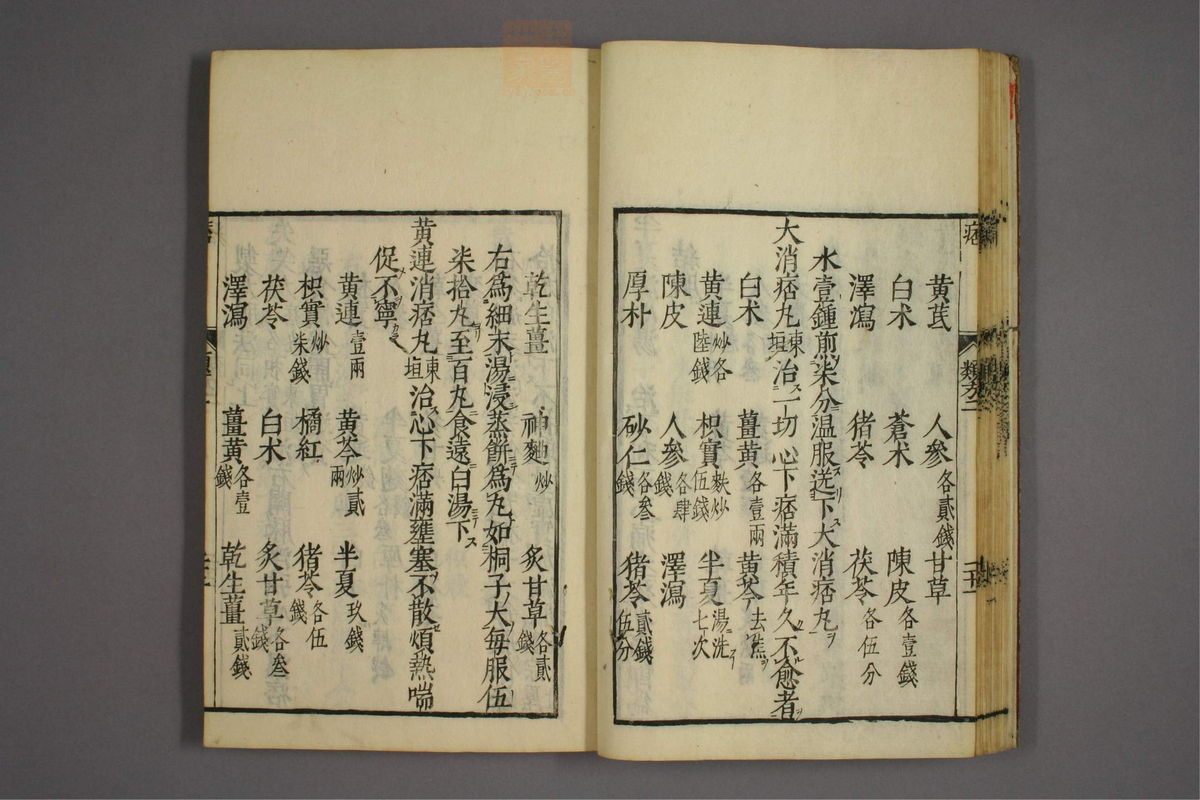 黄芪 人參各貳錢 甘草
白术 蒼术 陳皮各壹錢
澤瀉 猪苓 茯苓各伍分
水壹鍾煎柒分温服送下大消痞丸
大消痞丸東垣治一切心下痞滿積年久不愈者
白术 薑黄各壹兩 黄芩去焦
黄連炒各陸錢 枳實麩炒伍錢 半夏湯洗七次
陳皮 人參各肆錢 澤瀉
厚朴 砂仁各叁錢 猪苓貳錢伍分
乾生薑 神麯炒 炙甘草各貳錢
右爲細末湯浸蒸餅爲丸如桐子大每服伍
柒拾丸至百丸食遠白湯下
黄連消痞丸東垣治心下痞滿壅塞不散煩熱喘
促不寧
黄連壹兩 黄芩炒貳兩 半夏玖錢
枳實炒柒錢 橘紅 猪苓各伍錢
茯苓 白术 炙甘草各叁錢
澤瀉 薑黄各壹錢 乾生薑貳錢